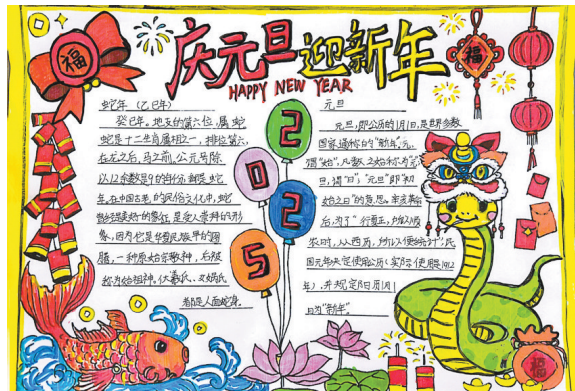 福
庆元旦迎新年
HAPPY NEW YEAR
福
蛇年 (乙巳年)
癸巳年。地支的第六位,属蛇。
蛇是十二生肖属相之一,排位第六,
在龙之后,马之前,公元号除
以12余数是9的年份都是蛇
年。在中国古老的民俗文化中,蛇
美好的象征,是受人崇拜的形
象,因为它是华夏民族早的图
腾,一种原始宗教神,后被
称为始祖神,伏羲氏、女娲氏
都是人面蛇身。
2
0
2
5
元旦
元旦,即公历的1月1日,是世界多数
国家通称的"新年"。元,
谓"始",凡数之始称为"元";
旦,谓"日";"元旦"即"初
始之日"的意思。辛亥革命
后,为了"行夏正,所以顺
农时,从西历,所以便统计",民
国元年决定使用公历(实际使用是1912
年),并规定阳历1月1
日为"新年"。
福